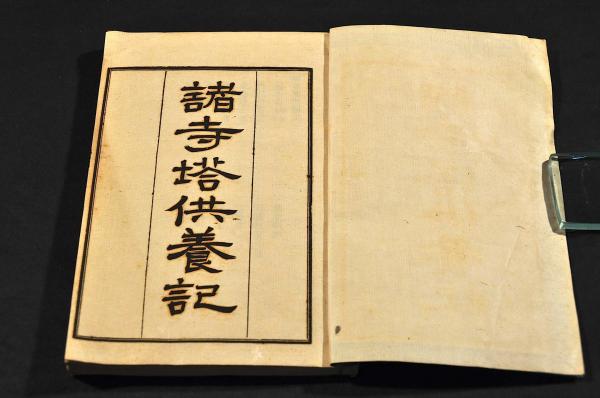 諸寺塔供養記